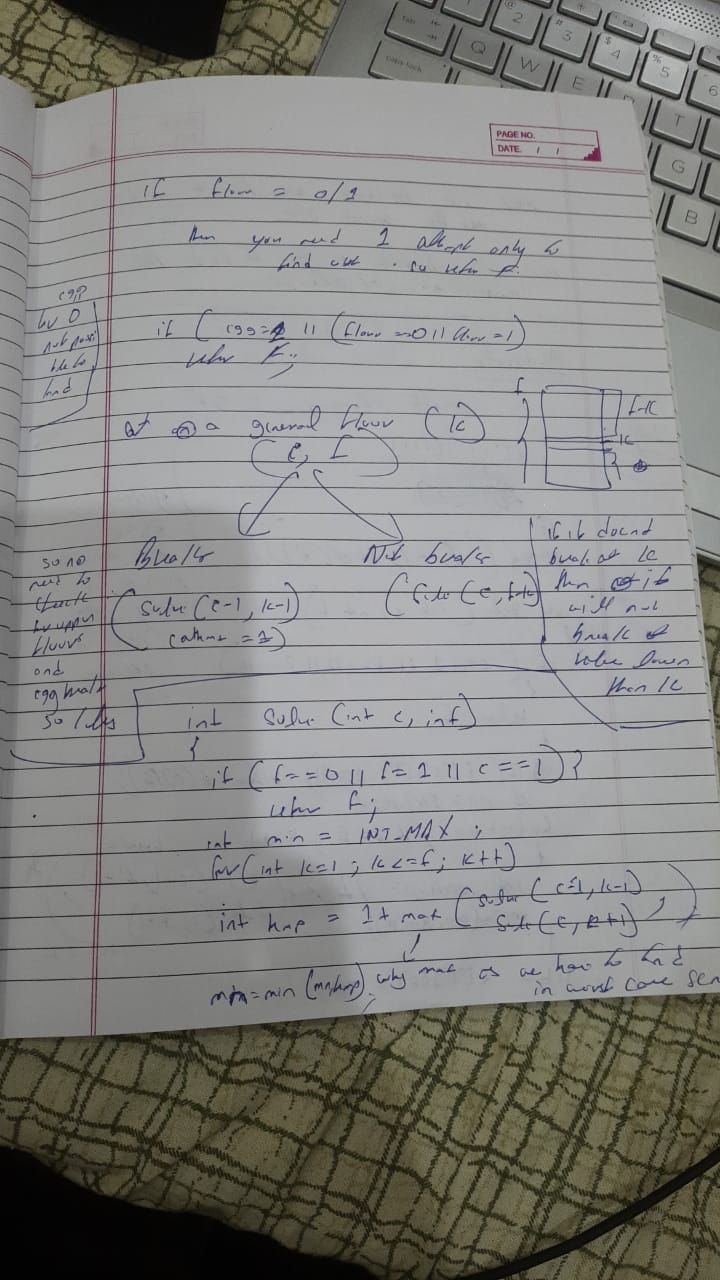 PAGE NO.
DATE. / /
if floor = 0/1
then you need 1 attempt only to
find out . so return f.
egg
for 0
not possi
ble to
find
if ( egg=1 || (floor ==0 || floor =1)
return f;
at a general floor (k)
(e, f)
f
f-k
k
Breaks
Not breaks
solve (e-1, k-1)
(solve (e, f-k)
if it doesnt
break at k
then it
will not
break
value lower
than k
so no
need to
check
for upper
floors
and
egg break
so
int solve (int e, int f)
{
if (f==0 || f=1 || e==1) {
return f;
int min = INT_MAX ;
for(int k=1 ; k<=f; k++)
int tmp = 1+ max (solve (e-1, k-1)
solve (e, k+1) , )
min=min (mn,tmp) why max as we have to find
in worst case
Q
W
E
T
G
B
2
3
4
5
6
tab
caps lock